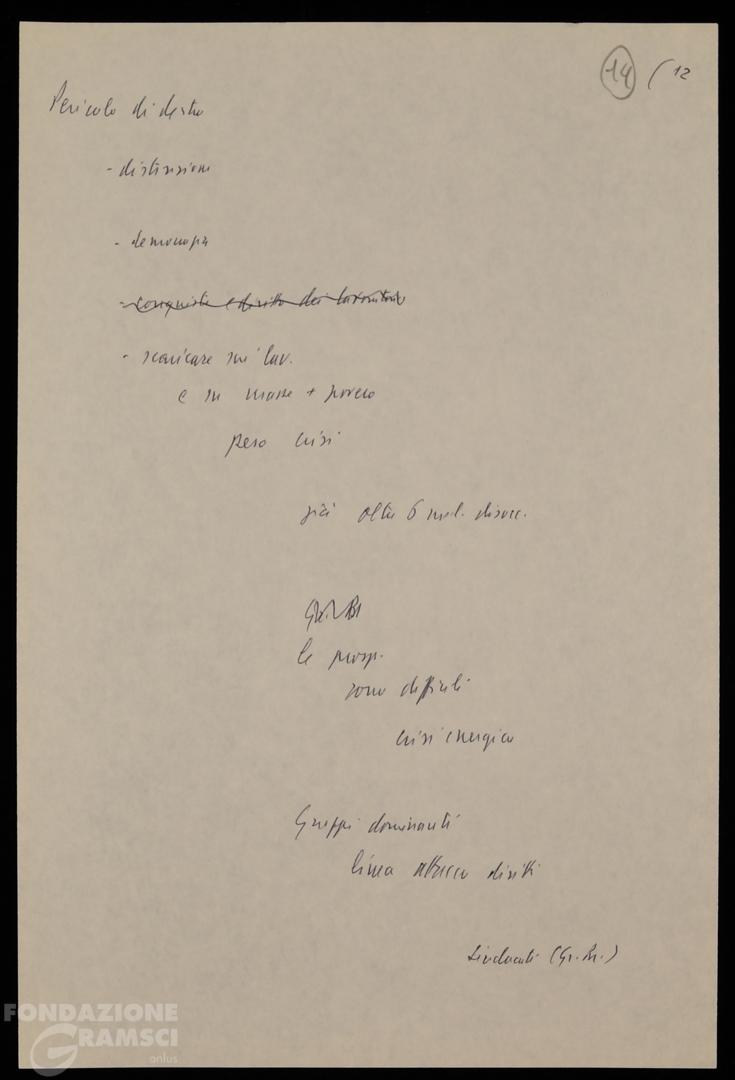 14 ( 12
Pericolo di destra
- distensione
- democrazia
- conquiste e diritti dei lavoratori
- scaricare sui lav.
e su masse + povere
peso crisi
già oltre 6 mil. disocc.
le prosp.
sono difficili
crisi energia
Gruppi dominanti
linea attacco diritti
Sindacati (Gr. Br.)
FONDAZIONE
GRAMSCI
onlus